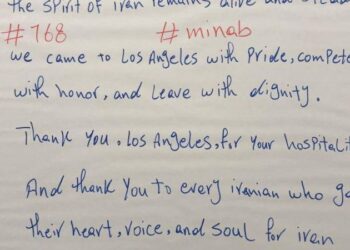 the spirit of iran remains alive and
#168 #minab
we came to Los Angeles with Pride, compete
with honor, and Leave with dignity.
Thank You, Los Angeles, for Your hospitali
And thank you to every iranian who
their heart, voice, and soul for iran